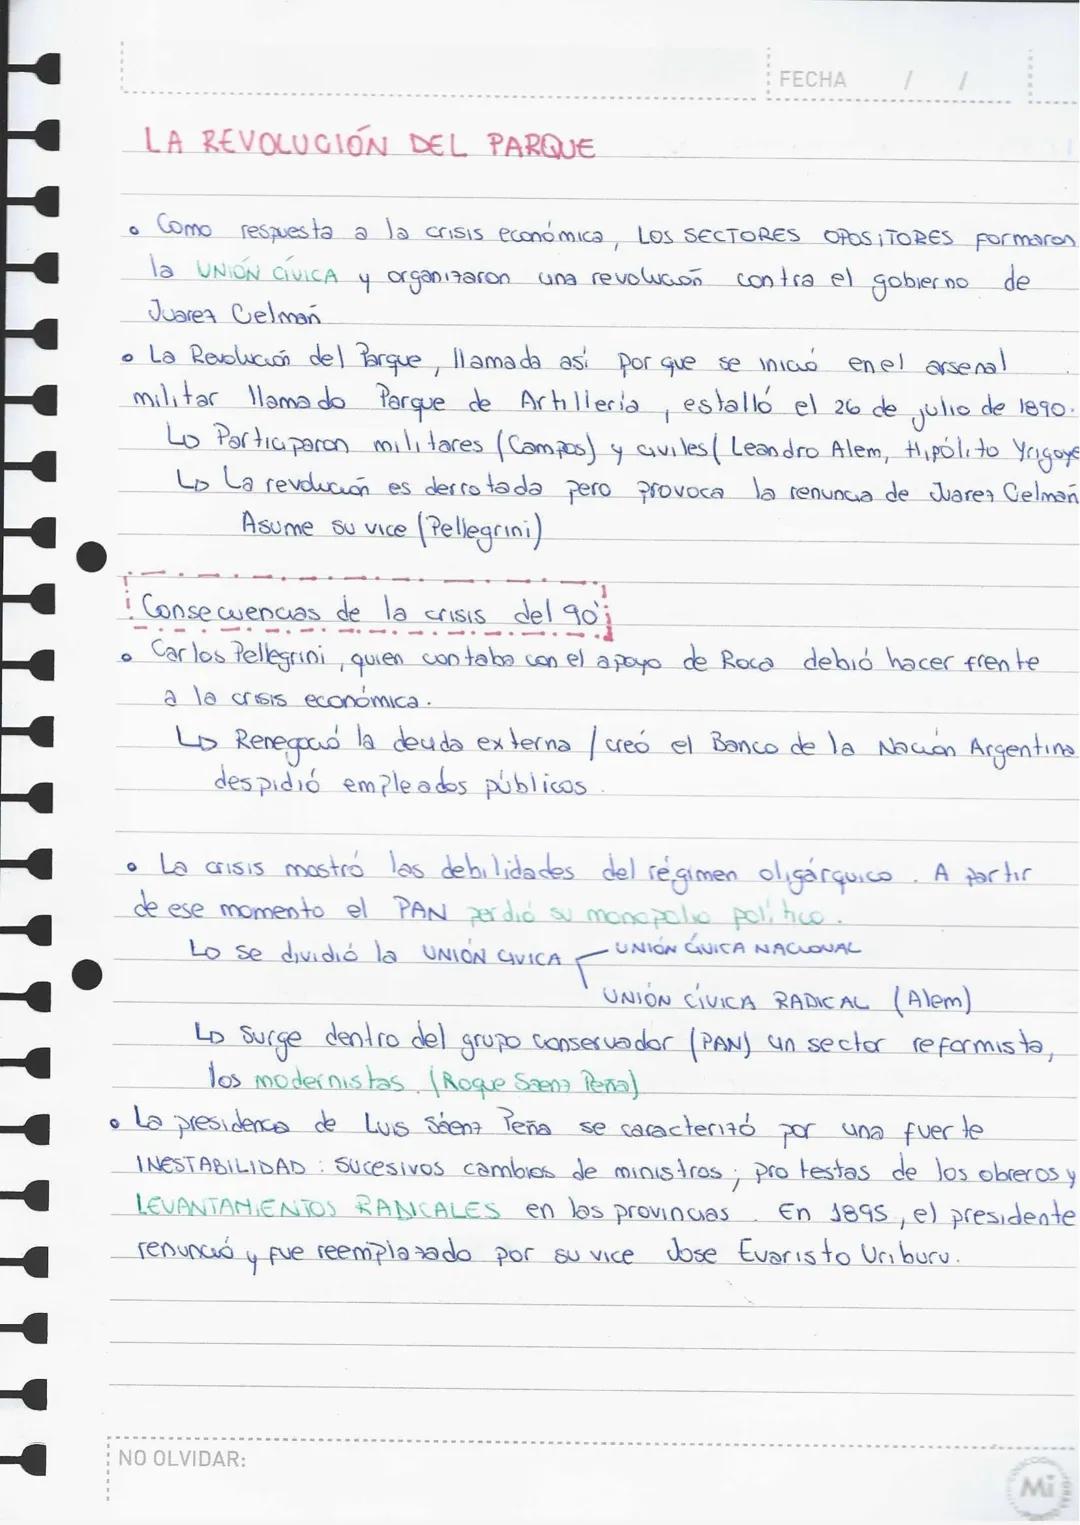 FECHA / /
LA REVOLUCIÓN DEL PARQUE
• Como respuesta a la crisis económica, LOS SECTORES OPOSITORES formaron
la UNIÓN CÍVICA y organizaron una revolución contra el gobierno de
Juarez Celman
• La Revolución del Parque, llamada así porque se inició en el arsenal
militar llamado Parque de Artillería, estalló el 26 de julio de 1890.
↳ Participaron militares (Campos) y civiles (Leandro Alem, Hipólito Yrigoye
↳ La revolución es derrotada pero provoca la renuncia de Juarez Celman
Asume su vice (Pellegrini)
Consecuencias de la crisis del 90'
• Carlos Pellegrini, quien contaba con el apoyo de Roca debió hacer frente
a la crisis económica.
↳ Renegoció la deuda externa / creó el Banco de la Nación Argentina
despidió empleados públicos.
• La crisis mostró las debilidades del régimen oligárquico. A partir
de ese momento el PAN perdió su monopolio político.
↳ se dividió la UNIÓN CIVICA
UNIÓN CÍVICA NACIONAL
UNIÓN CÍVICA RADICAL (Alem)
↳ Surge dentro del grupo conservador (PAN) un sector reformista,
los modernistas. (Roque Saenz Peña)
• La presidencia de Luis Sáenz Peña se caracterizó por una fuerte
INESTABILIDAD: sucesivos cambios de ministros; protestas de los obreros y
LEVANTAMIENTOS RADICALES en las provincias. En 1895, el presidente
renunció y fue reemplazado por su vice Jose Evaristo Uriburu.
NO OLVIDAR:
Mi